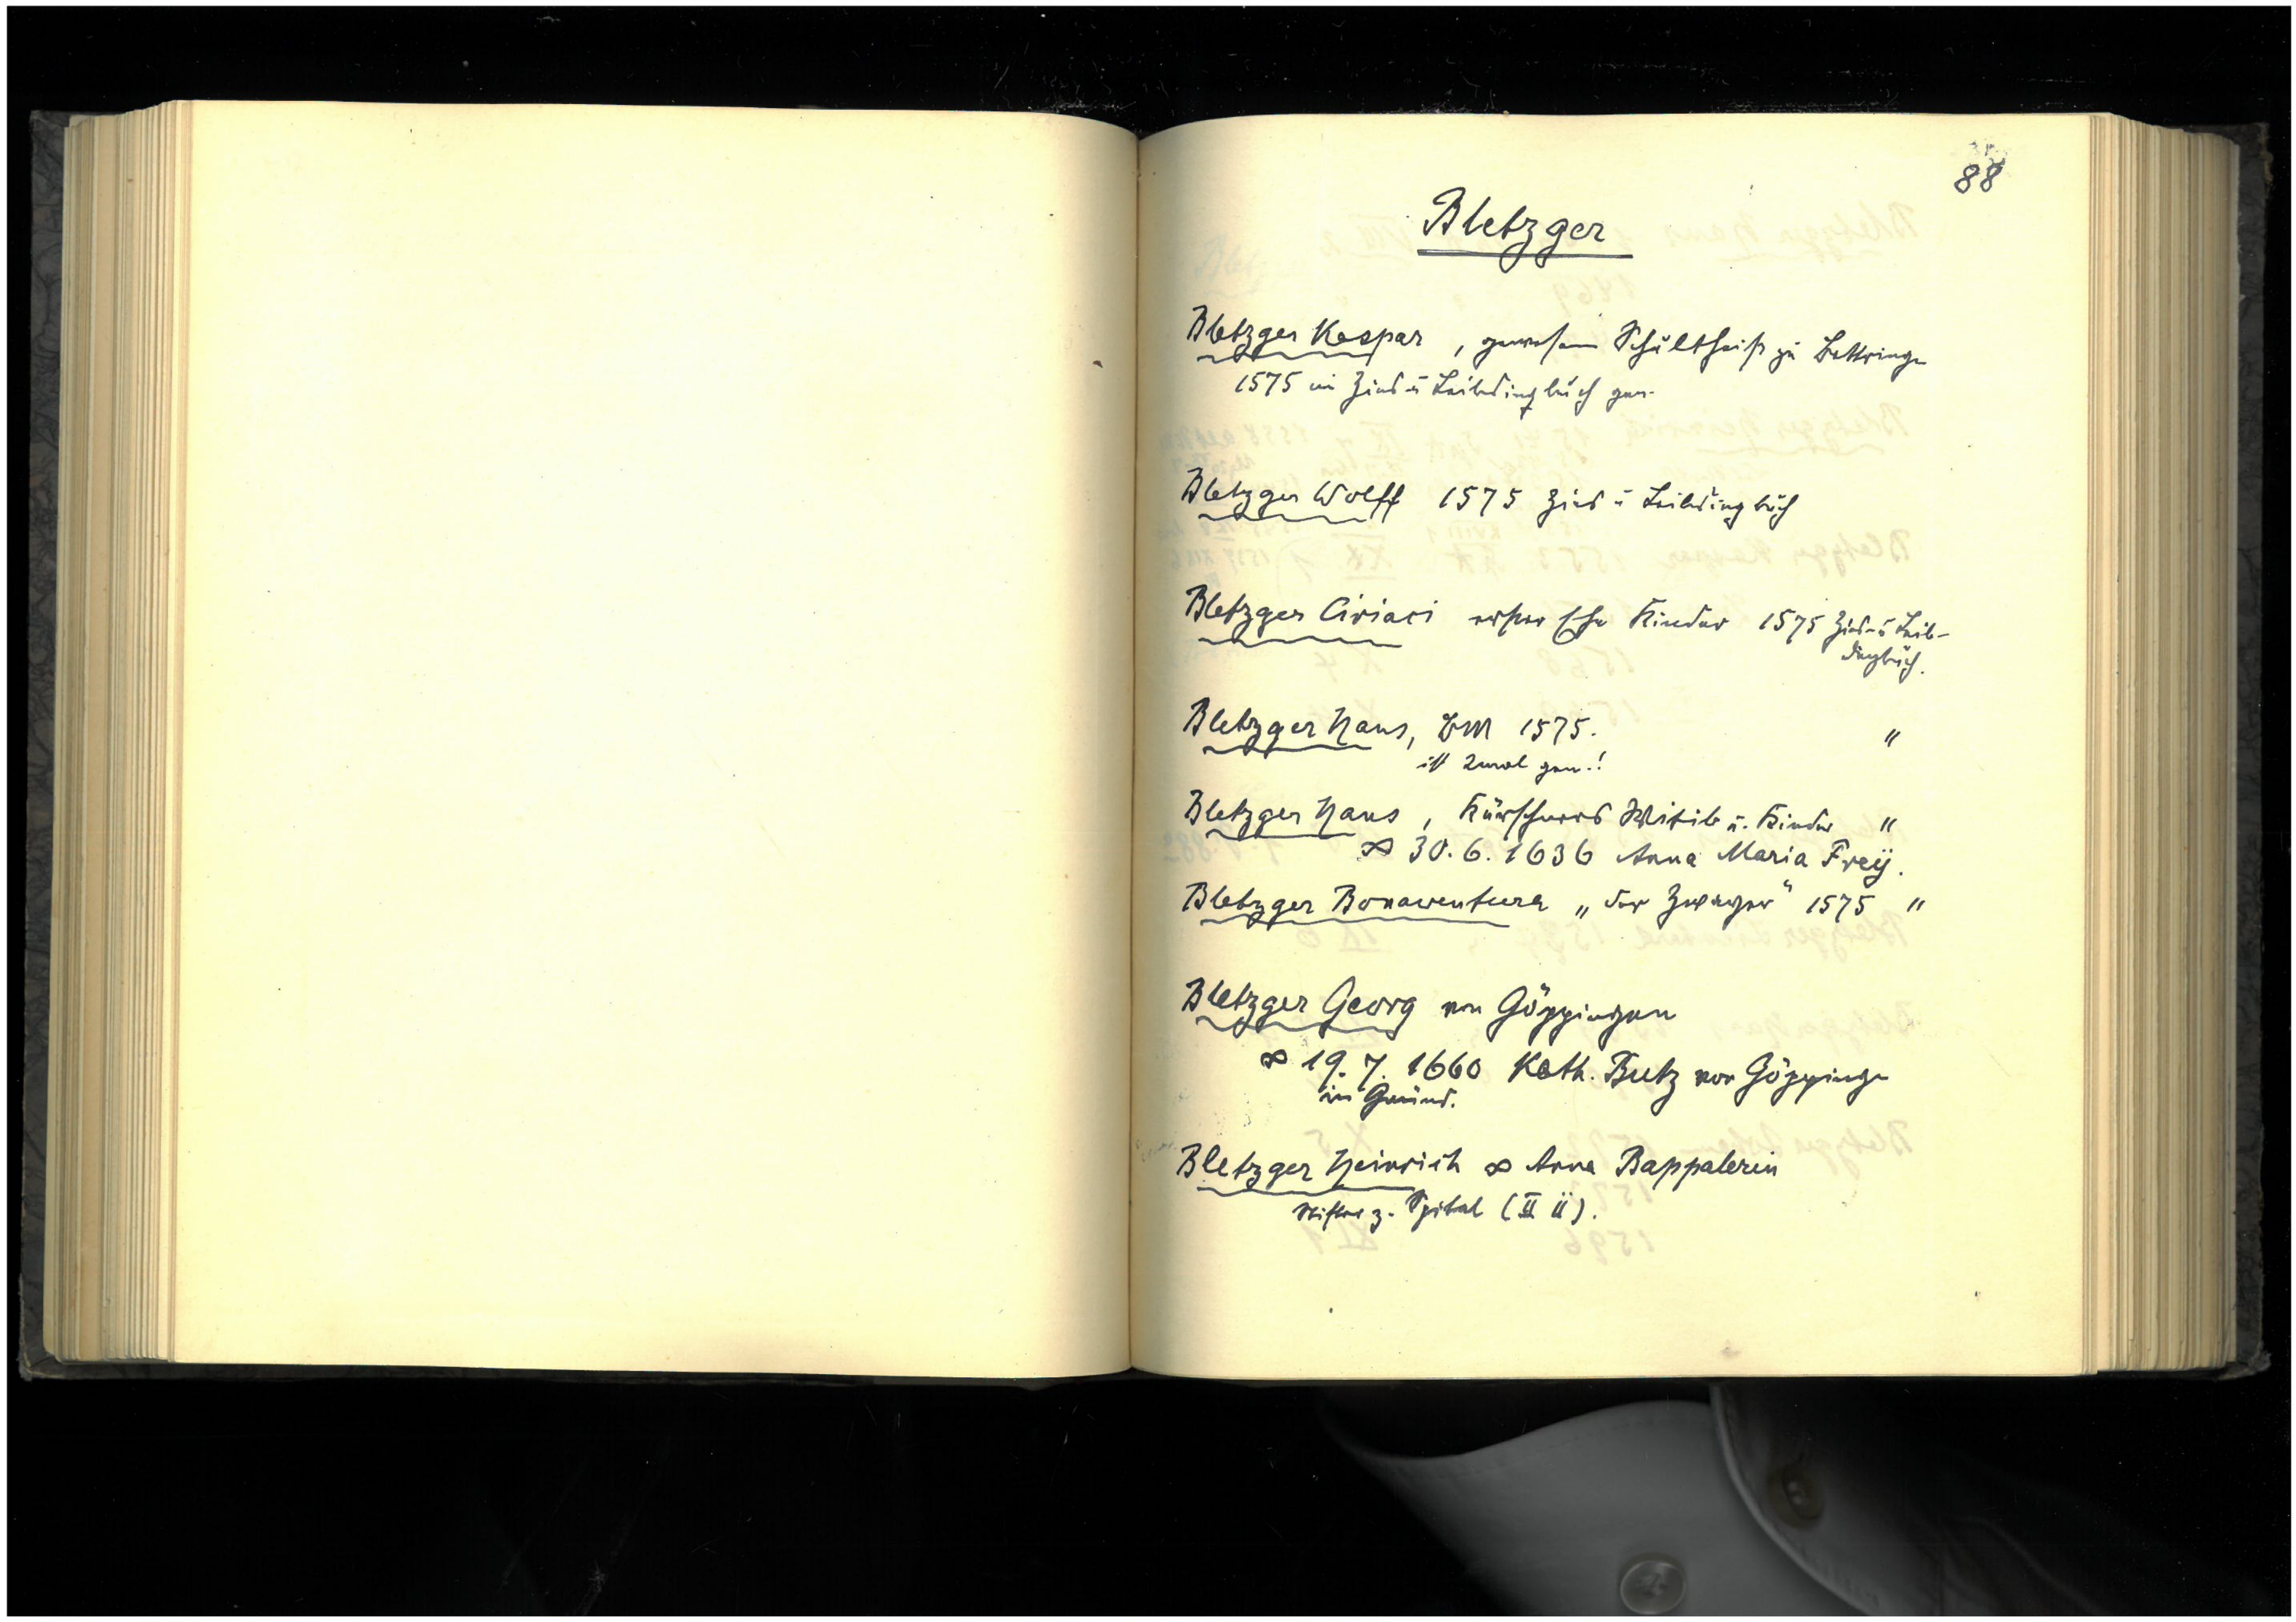 88
Bletzger
Bletzger Kaspar, gewesener Schultheiß zu Bettringen
1575 im Zins u Leibdingbuch gen.
Bletzger Wolff 1575 Zins u Leibdingbuch
Bletzger Ciriaci Kinder 1575 Zins- u Leib-
dingbuch.
Bletzger Hans, BM 1575. "
ist 2mal gen.!
Bletzger Hans, Kürschners Witib u. Kinder "
∞ 30.6.1636 Anna Maria Freÿ.
Bletzger Bonaventura „der 1575 "
Bletzger Georg von Göppingen
∞ 19.7.1660 Kath. Butz von Göppingen
in Gmünd.
Bletzger Heinrich ∞ Anna Bappalerin
Stifter z. Spital (II ü).